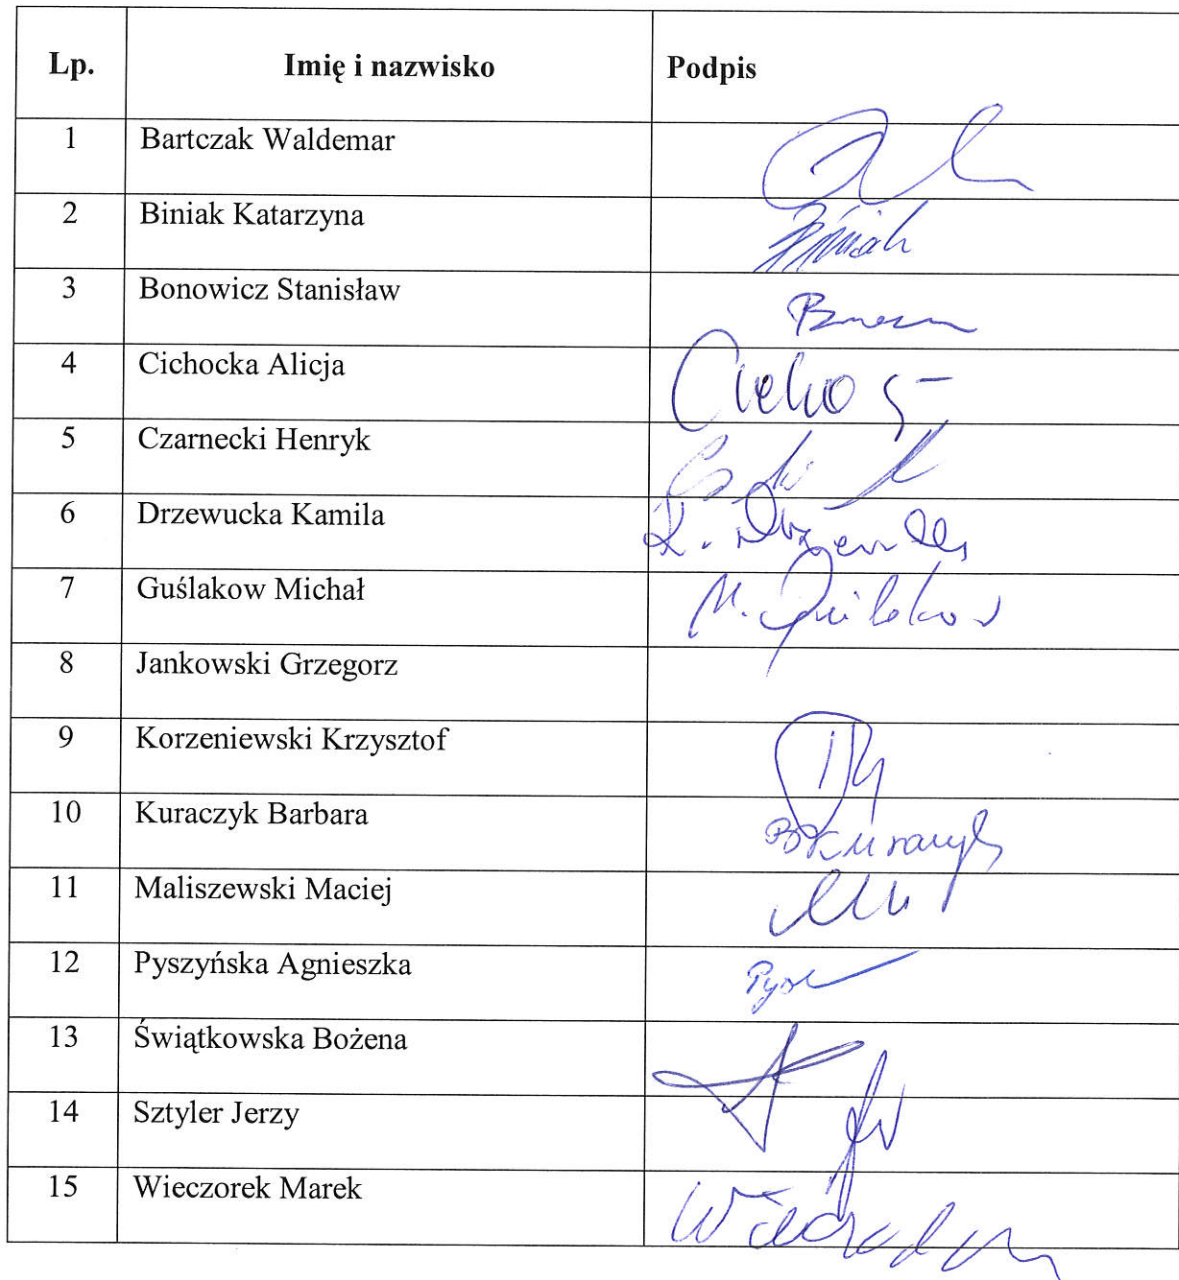 Lp. Imię i nazwisko Podpis
1 Bartczak Waldemar
2 Biniak Katarzyna Biniak
3 Bonowicz Stanisław
4 Cichocka Alicja
5 Czarnecki Henryk
6 Drzewucka Kamila K.
7 Guślakow Michał M. Guślakow
8 Jankowski Grzegorz
9 Korzeniewski Krzysztof
10 Kuraczyk Barbara BKuraczyk
11 Maliszewski Maciej
12 Pyszyńska Agnieszka
13 Świątkowska Bożena
14 Sztyler Jerzy
15 Wieczorek Marek